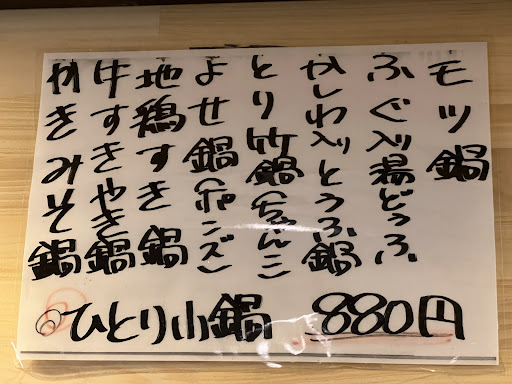 モツ鍋
ふぐ入り湯どうふ
かしわ入りとうふ鍋
とり竹鍋(ちゃんこ)
よせ鍋(ポンズ)
地鶏すき鍋
牛すきやき鍋
かきみそ鍋
◎ひとり小鍋 880円